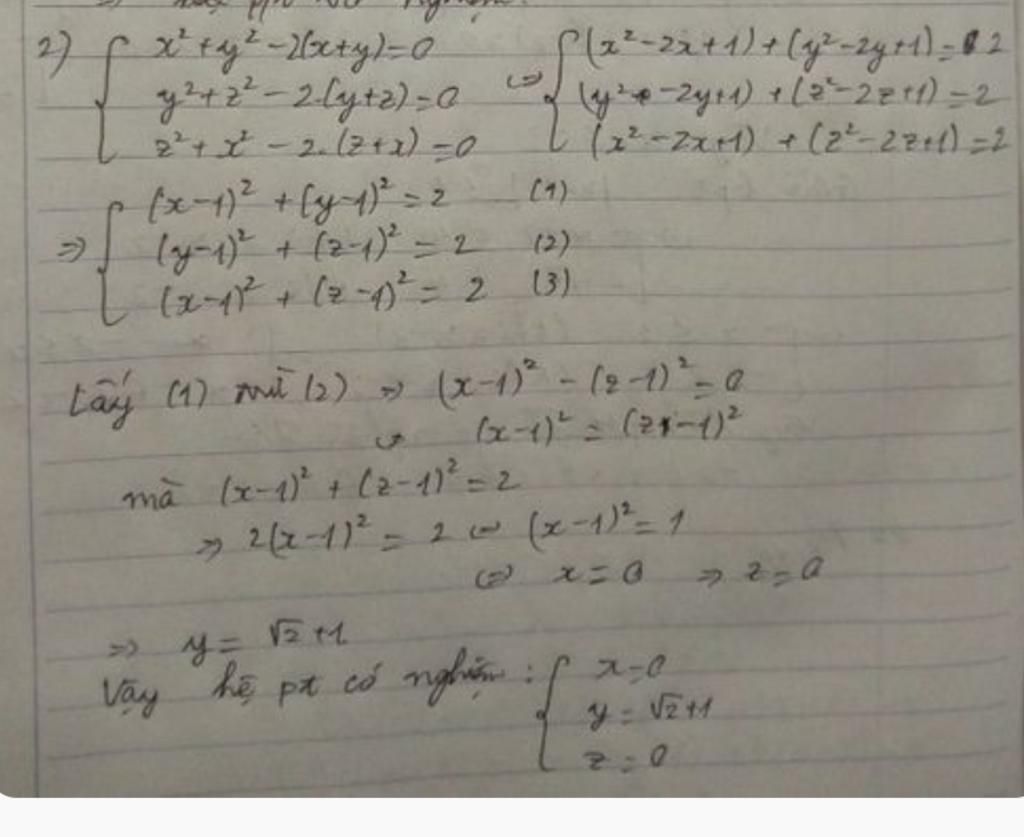 2) { x² + y² - 2(x+y) = 0 <=> { (x² - 2x + 1) + (y² - 2y + 1) = 2
y² + z² - 2.(y+z) = 0 (y² - 2y + 1) + (z² - 2z + 1) = 2
z² + x² - 2.(z+x) = 0 (x² - 2x + 1) + (z² - 2z + 1) = 2
=> { (x-1)² + (y-1)² = 2 (1)
(y-1)² + (z-1)² = 2 (2)
(x-1)² + (z-1)² = 2 (3)
Lấy (1) trừ (2) => (x-1)² - (z-1)² = 0
<=> (x-1)² = (z-1)²
mà (x-1)² + (z-1)² = 2
=> 2(x-1)² = 2 <=> (x-1)² = 1
<=> x = 0 => z = 0
=> y = √2 + 1
Vậy hệ pt có nghiệm : { x = 0
y = √2 + 1
z = 0